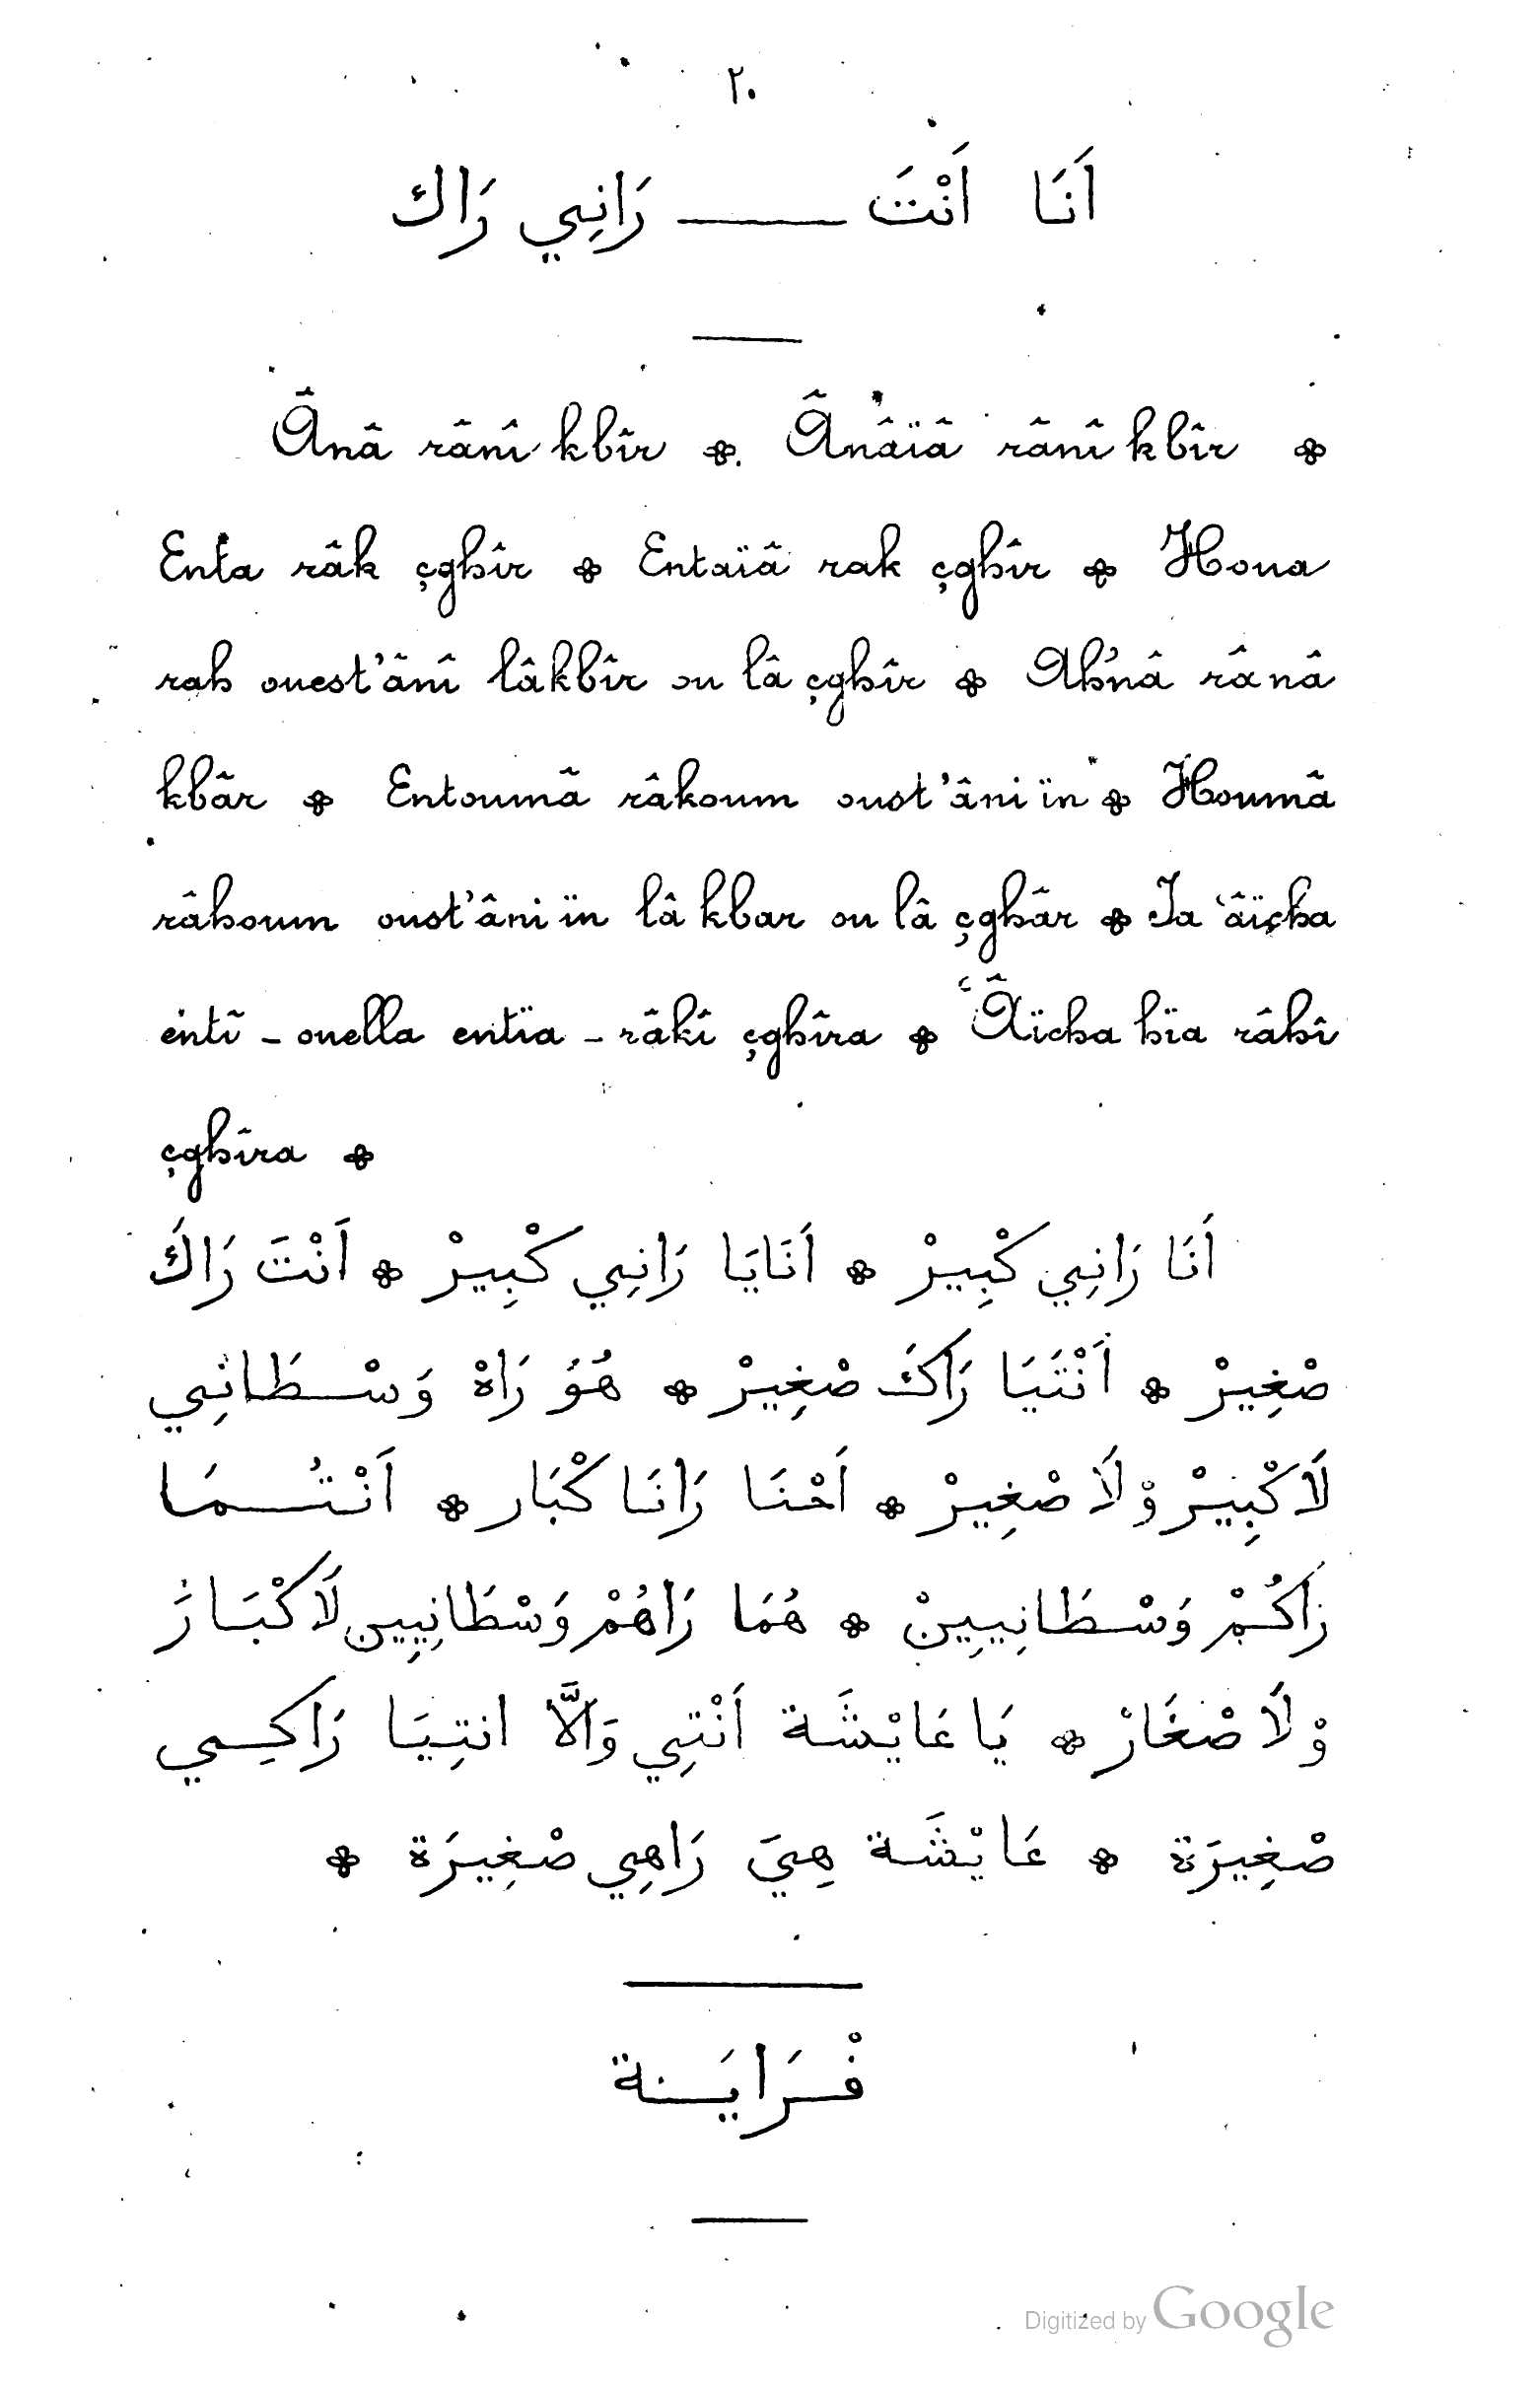 ٢٠
اَنَا اَنْتَ ـــــ رَانِي رَاك
Ânâ rânî kbîr ✤ Ânâïâ rânî kbîr ✤
Enta râk çghîr ✤ Entaïâ rak çghîr ✤ Houa
rah ouest'ânî lâkbîr ou lâ çghîr ✤ Ah'nâ rânâ
kbâr ✤ Entoumâ râkoum oust'âniïn ✤ Houmâ
râhoum oust'âniïn lâ kbar ou lâ çghâr ✤ Ia ʿâïcha
entî – ouella entïa – râkî çghîra ✤ ʿÂïcha hïa râhî
çghîra ✤
اَنَا رَانِي كْبِيرْ ✤ اَنَايَا رَانِي كْبِيرْ ✤ اَنْتَ رَاكَ
صْغِيرْ ✤ اَنْتَيَا رَاكَ صْغِيرْ ✤ هُوَ رَاهْ وَسْطَانِي
لَا كْبِيرْ وْلَا صْغِيرْ ✤ اَحْنَا رَانَا كْبَار ✤ اَنْتُمَا
رَاكُمْ وَسْطَانِيِينْ ✤ هُمَا رَاهُمْ وَسْطَانِيِين لَا كْبَارَ
وْلَا صْغَارْ ✤ يَا عَايْشَة اَنْتِي وَالَّا انتِيَا رَاكِي
صْغِيرَة ✤ عَايْشَة هِيَ رَاهِي صْغِيرَة ✤
فْرَايَنة
Digitized by Google